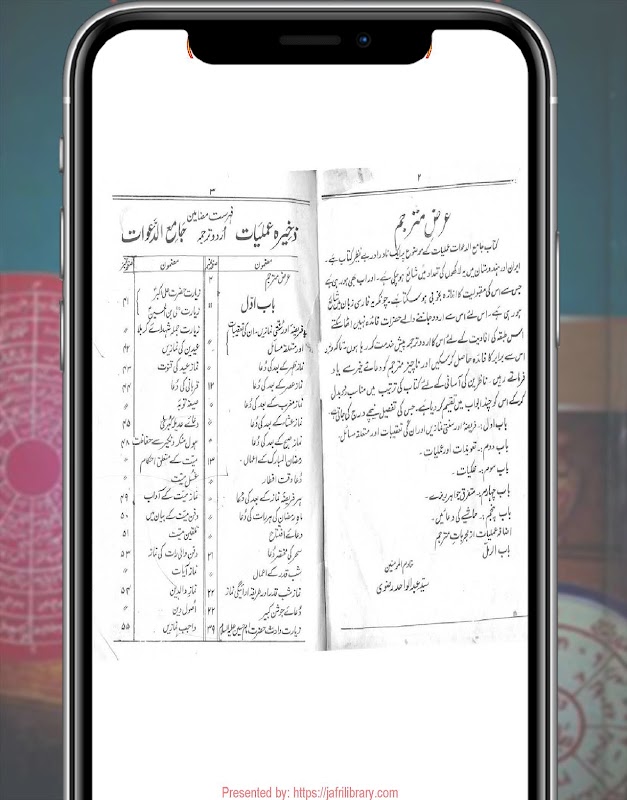 ۲
عرض مترجم
کتاب جامع الدعوات عملیات کے مجموعہ پر ایک نادر اور بے نظیر کتاب ہے۔
ایران اور ہندوستان میں یہ لاکھوں کی تعداد میں شائع ہو چکی ہے۔ اور اب بھی ہو رہی ہے
جس سے اس کی مقبولیت کا اندازہ بخوبی ہو سکتا ہے۔ چونکہ یہ فارسی زبان میں شائع
ہو رہی ہے۔ اس لئے اس سے اردو جاننے والے حضرات فائدہ نہیں اٹھا سکتے
اس طبقہ کی افادیت کے لئے اس کا اردو ترجمہ پیش خدمت کر رہا ہوں، تاکہ ہر فرد
اس سے برابر کا فائدہ حاصل کر سکیں اور ناچیز مترجم کو دعائے خیر سے یاد
فرماتے رہیں۔ ناظرین کی آسانی کے لئے کتاب کی ترتیب میں مناسب ردوبدل
کر کے اس کو چند ابواب میں تقسیم کر دیا ہے۔ جس کی تفصیل نیچے درج کی جاتی ہے
باب اول:۔ فریضہ اور سنتی نمازیں اور ان کی تعقیبات اور متعلقہ مسائل۔
باب دوم:۔ تعویذات اور عملیات۔
باب سوم:۔ عملیات۔
باب چہارم:۔ متفرق جواہر ریزے۔
باب پنجم:۔ کی دعائیں۔
اضافہ عملیات از مجربات مترجم
باب الرمل
خادم المومنین
سید عبدالواحد رضوی
۳
فہرست مضامین
ذخیرہ عملیات اردو ترجمہ جامع الدعوات
مضمون صفحہ نمبر
عرض مترجم ۲
باب اول
فریضہ اور سنتی نمازیں۔ ان کی تعقیبات
اور متعلقہ مسائل
نماز ظہر کے بعد کی دعا
نماز عصر کے بعد کی دعا ۱۲
نماز مغرب کے بعد کی دعا
نماز عشا کے بعد کی دعا
نماز صبح کے بعد کی دعا
رمضان المبارک کے اعمال۔ ۱۳
دعا وقت افطار
ہر فریضہ نماز کے بعد کی دعا
ماہ رمضان کی ہر رات کی دعا
دعائے افتتاح
سحر کی مختصر دعا ۲۱
شب قدر کے اعمال
نماز شب قدر اور طریقہ ادائیگی نماز ۲۲
دعائے جوشن کبیر ۲۲
زیارت وارث حضرت امام حسین علیہ السلام ۳۹
مضمون صفحہ نمبر
زیارت حضرت علی اکبر
زیارت آل بنی حسین ۴۱
زیارت جملہ شہدائے کربلا
عیدین کی نمازیں ۴۲
نماز عید کی قنوت ۴۳
قربانی کی دعا ۴۴
صیغہ توبہ 〃
دعائے عدیلہ ۴۵
۴۸
میت کے متعلق احکام 〃
غسل میت 〃
نماز میت کے آداب ۴۹
دفن میت کے بیان میں ۵۰
تلقین میت ۵۱
دفن والی رات کی نماز ۵۳
نماز آیات 〃
نماز والدین ۵۴
اصول دین 〃
واجب نمازیں ۵۵
Presented by: https://jafrilibrary.com